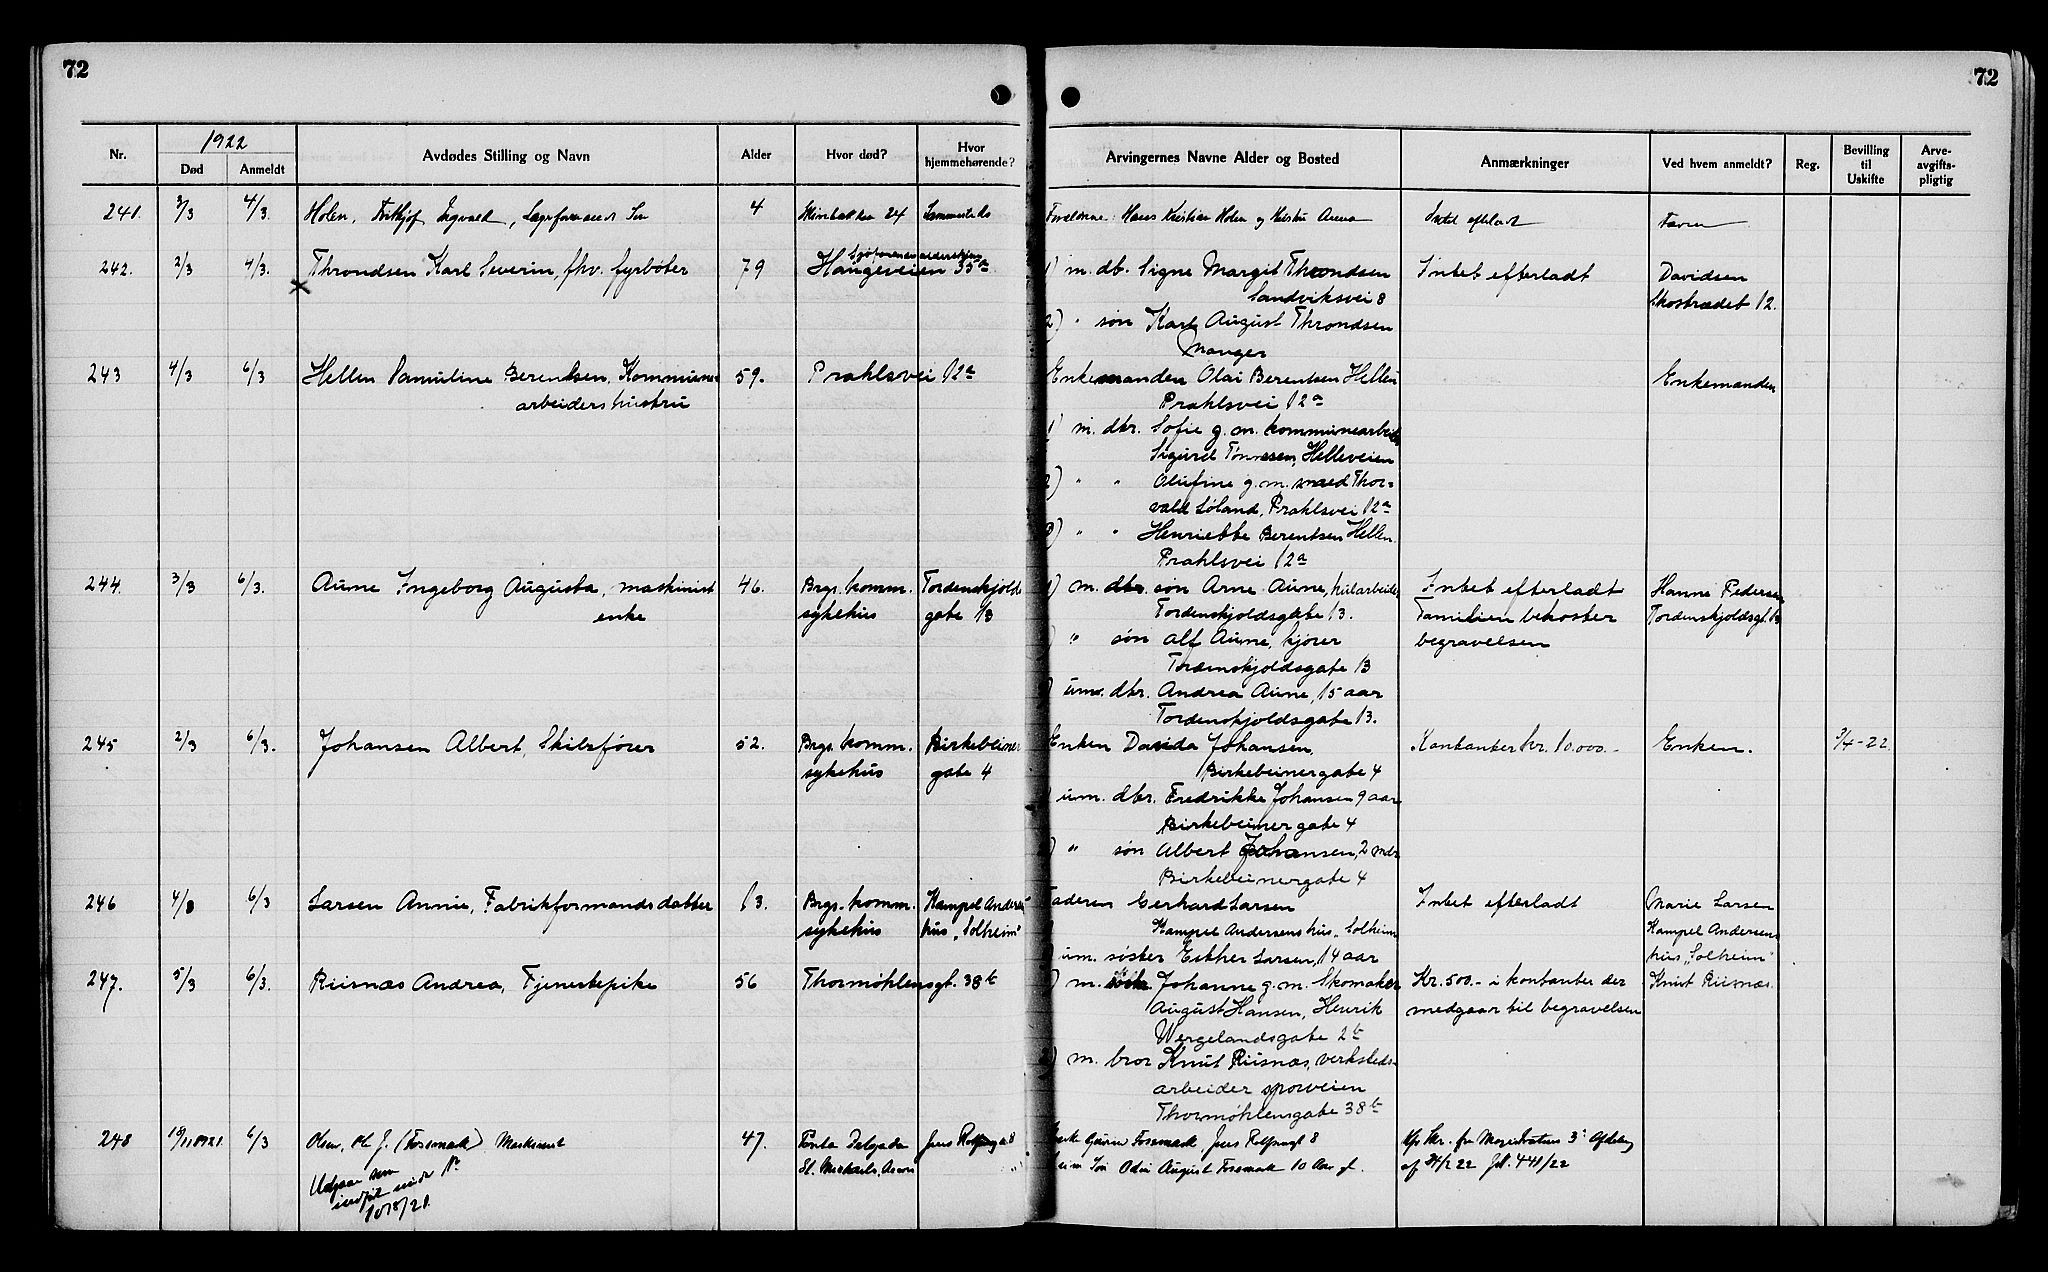 72
72
1922
Nr.
Død
Anmeldt
Avdødes Stilling og Navn
Alder
Hvor død?
Hvor hjemmehørende?
Arvingernes Navne Alder og Bosted
Anmærkninger
Ved hvem anmeldt?
Reg.
Bevilling til Uskifte
Arve-avgifts-pligtig
241. 3/3 4/3. Holen, Fritjof Ingvald, Søn 4 24 Forældrene: Hans Kristian Holen og Intet efterladt Faren
242. 2/3 4/3. Throndsen Karl Severin, fhv. fyrbøter 79 Haugeveien 35a 1) m. db. Signe Margit Throndsen Intet efterladt Davidsen
× Sandviksvei 8 Skostrædet 12.
2) " søn Karl August Throndsen
Manger
243 4/3 6/3 Hellen Samuline Berentsen, Kommune- 59. Prahlsvei 12a Enkemanden Olai Berentsen Hellen Enkemanden
arbeiders hustru Prahlsvei 12a
1) m. dtr. Sofie g. m. kommunearbeid.
Sigurd Tønnessen, Helleveien
2) " " Olufine g. m. smed Thor-
vald Søland, Prahlsvei 12a
3) " " Henriette Berentsen Hellen
Prahlsvei 12a
244. 3/3 6/3. Aune Ingeborg Augusta, maskinist 46. Brgs. komm. Tordenskjolds 1) m. søn Arne Aune, Intet efterladt Hanna Pedersen
enke sykehus gate 13 Tordenskjoldsgate 13. Familien bekoster Tordenskjoldsgt. 13
) " søn Alf Aune, kjører begravelsen
Tordenskjoldsgate 13
) um. dtr. Andrea Aune, 15 aar
Tordenskjoldsgate 13.
245 2/3 6/3. Johansen Albert, Skibsfører 52. Brgs. komm. Birkebeiner Enken Davida Johansen, Kontanter kr. 10.000.- Enken. 3/4-22
sykehus gate 4 Birkebeinergate 4
) um. dtr. Fredrikke Johansen 9 aar
Birkebeinergate 4
) " søn Albert Johansen, 2 mdr.
Birkebeinergate 4
246 4/3 6/3 Larsen Annie, Fabrikformands datter 13. Brgs. komm. Kampel Anders. Faderen Gerhard Larsen Intet efterladt Marie Larsen
sykehus hus "Solheim" Kampel Andersens hus, Solheim Kampel Andersens
um. søster Esther Larsen, 14 aar hus "Solheim"
247. 5/3 6/3. Risnæs Andrea, Tjenestepike 56 Thormøhlensgt. 38b ) m. Johanne g. m. Skomaker Kr. 500.- i kontanter der Knut Risnæs.
August Hansen, Henrik medgaar til begravelsen
Wergelandsgate 2b
2) m. bror Knut Risnæs, verksteds-
arbeider sporveien
Thormøhlensgate 38b
248 1921. 6/3 Olsen, J. (Forsmark) Maskinist 47. Ponta Delgada Jens Rolfsengt 8 Enke Forsmark, Jens Rolfsngt 8 3' Afdeling
St. Michaels, Søn Odin August Forsmark 10 Aar gl. af 22 441/22
Utgaar som
indført under Nr
1078/21.